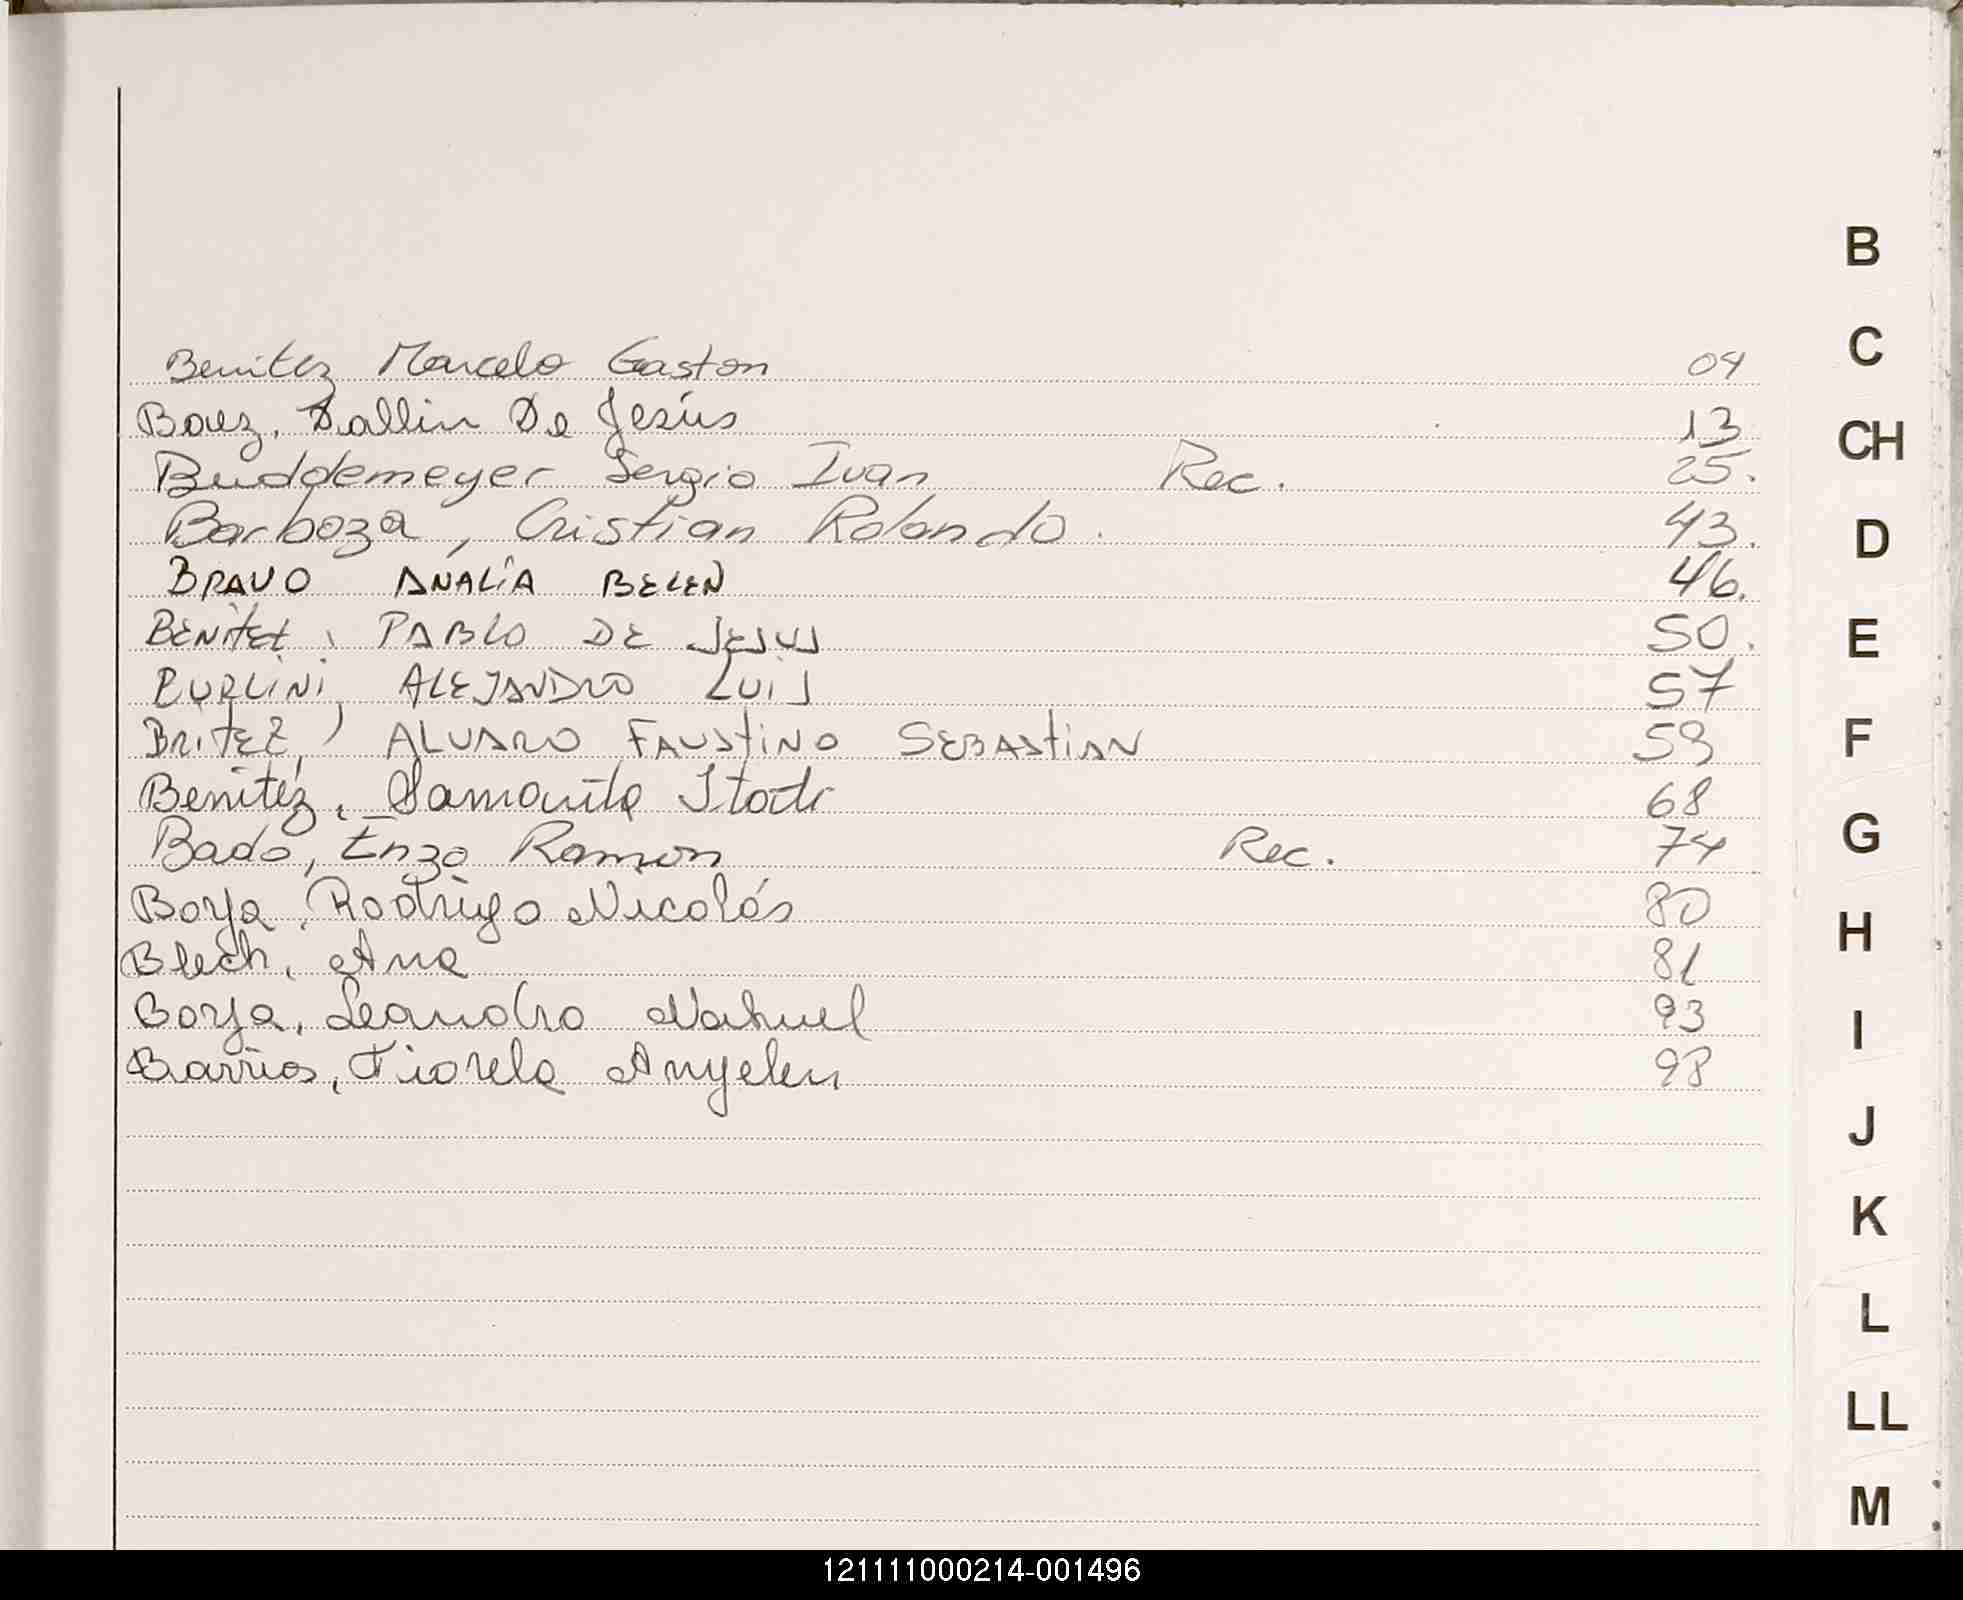 Benitez Marcelo Gaston 04
Baez, Dallin De Jesús 13
Buddemeyer Sergio Ivan Rec. 25.
Barboza, Cristian Rolando. 43.
BRAVO ANALÍA BELEN 46.
BENITEZ, PABLO DE JESUS 50.
BURLINI, ALEJANDRO LUIS 57
BRITEZ, ALVARO FAUSTINO SEBASTIAN 59
Benitéz, 68
Bado, Enzo Ramon Rec. 74
Borja, Rodrigo Nicolás 80
Blech, Ana 81
Borja, Leandro Nahuel 93
Barrios, Fiorela Anyelen 98
B
C
CH
D
E
F
G
H
I
J
K
L
LL
M
121111000214-001496